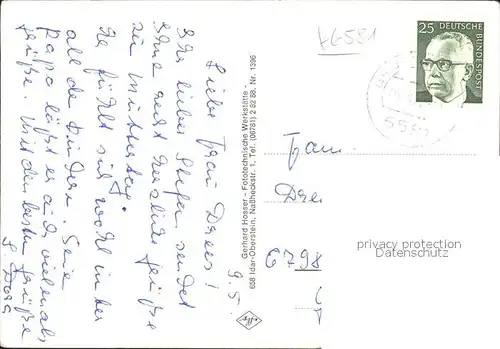 Liebe Frau Drees!
Ihr lieber Stefan sendet
Ihnen recht herzliche Grüße
zu Muttertag.
Er fühlt sich wohl in der
all der Kindern. Sein
Papa läßt er auch vielmals
grüße. Mit den besten Grüße
9.5.
Gerhard Hosser - Fototechnische Werkstätte -
658 Idar-Oberstein, Naßheckstr. 1, Tel. (06781) 2 62 88, Nr. 1396
4G531
25 DEUTSCHE BUNDESPOST
Fam.
Dre
6798
privacy protection
Datenschutz